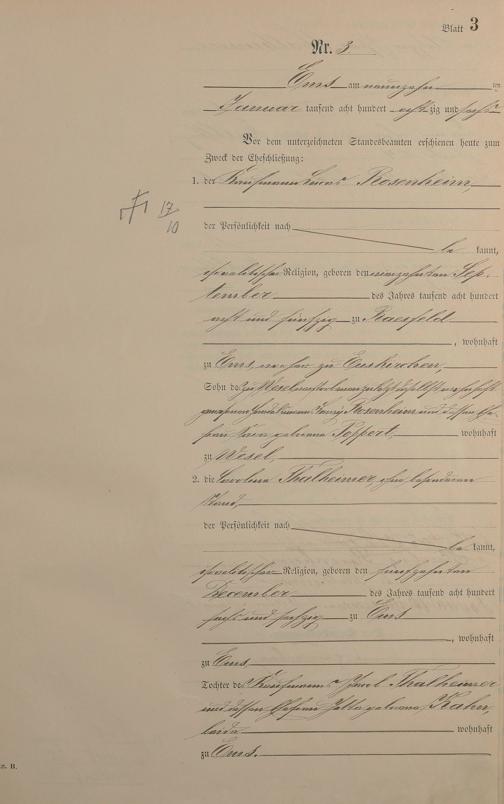 Blatt 3
Nr. 3
Ems am neunzehn ten
Januar tausend acht hundert achtzig und sechs
Vor dem unterzeichneten Standesbeamten erschienen heute zum
Zweck der Eheschließung:
1. der Kaufmann Rosenheim,
17/10
der Persönlichkeit nach
be kannt,
israelitischer Religion, geboren den neunzehnten Sep-
tember des Jahres tausend acht hundert
acht und fünfzig zu Raesfeld
, wohnhaft
zu Ems, vorher zu Euskirchen,
Sohn des zu Wesel
Rosenheim und dessen Ehe-
frau Sara geborene Poppert, wohnhaft
zu Wesel,
2. die Carolina Thalheimer, ohne besonderen
Stand,
der Persönlichkeit nach
be kannt,
israelitischer Religion, geboren den fünfzehnten
December des Jahres tausend acht hundert
sechs und sechzig zu Ems
, wohnhaft
zu Ems,
Tochter des Kaufmanns Thalheimer
und dessen Ehefrau Jetta geborene
wohnhaft
zu Ems.
n. B.